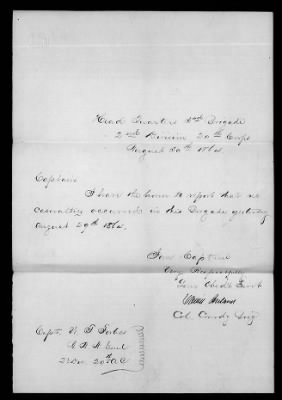 Head Quarters 3rd Brigade
2nd Division 20th Corps
August 30th 1864
Captain
I have the honor to report that no
casualties occurred in this Brigade yesterday
August 29th 1864.
I am Captain
Very Respectfully
Your Obedt Servt
Col. Comdg Brig
Capt. W. T. Forbes
A. A. A. Genl
2" Div. 20th A.C.